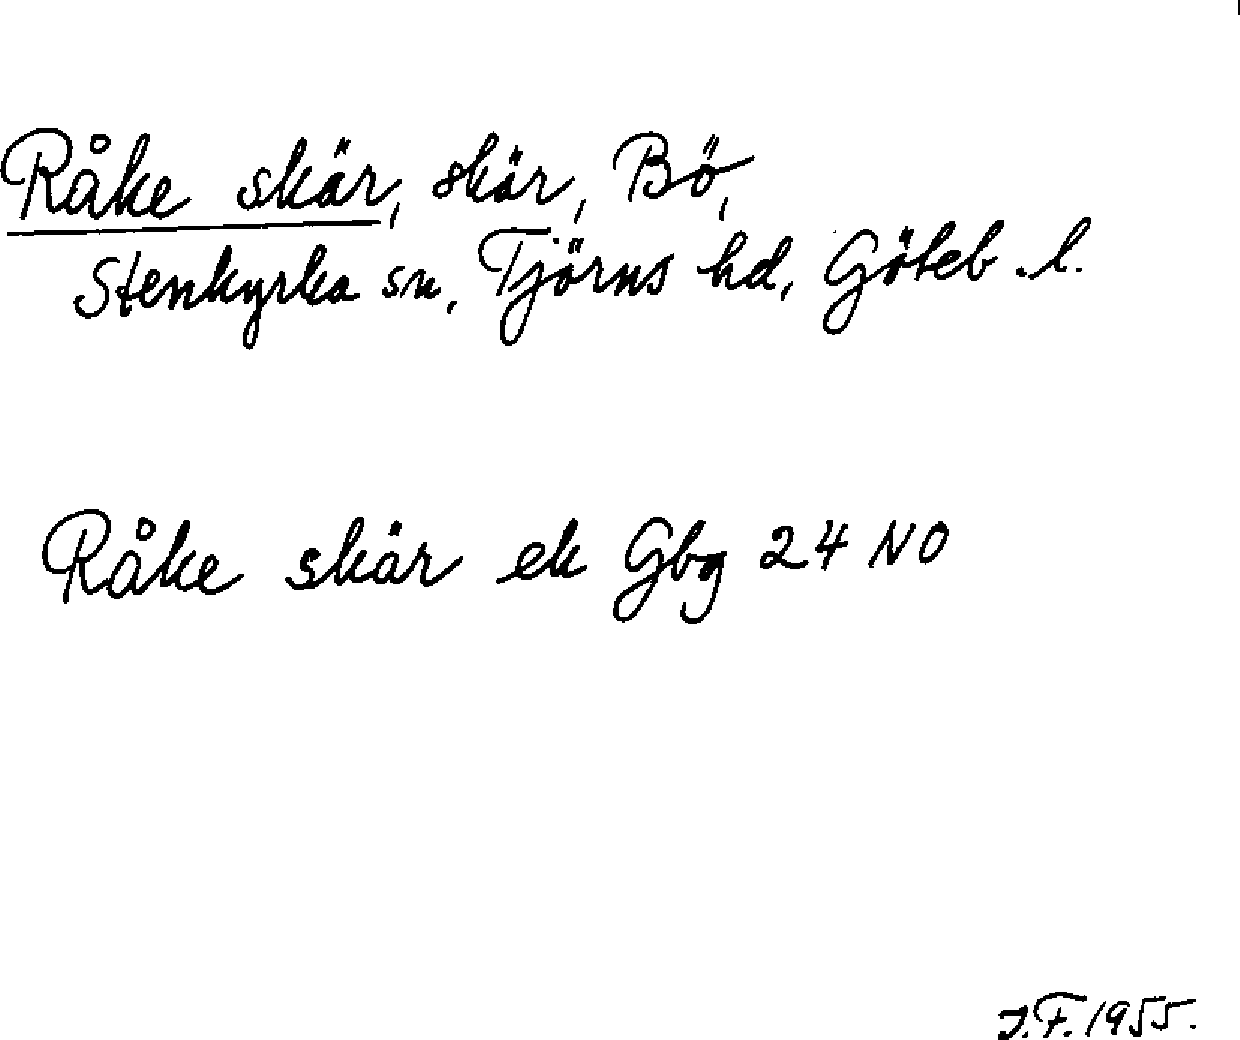 Råke skär, skär, Bö,
Stenkyrka sn, Tjörns hd, Göteb. l.
Råke skär ek Gbg 24 NO
J.F. 1955.